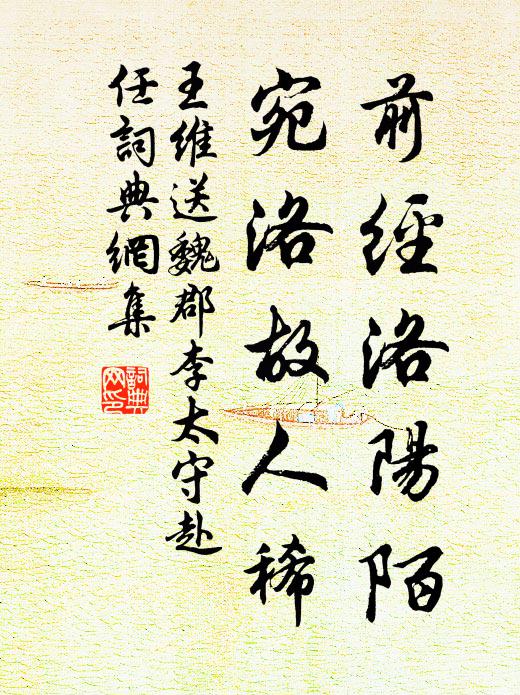 前經洛陽陌
宛洛故人稀
王維送魏郡李太守赴
任詞典網集
詞典
网印